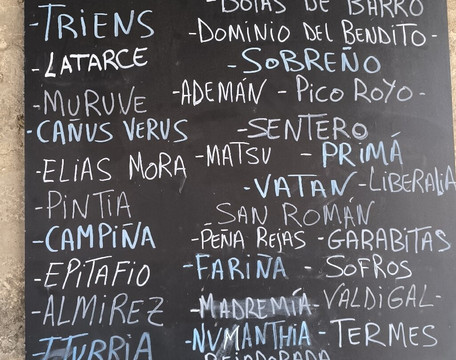 -BOTAS DE BARRO
-TRIENS
-DOMINIO DEL BENDITO-
-LATARCE
-SOBREÑO
-ADEMÁN - PICO ROYO-
-MURUVE
-CAÑUS VERUS
-SENTERO
-ELIAS MORA
-MATSU - PRIMÁ
-VATAN -LIBERALIA
-PINTIA
SAN ROMÁN
-CAMPIÑA
-PEÑA REJAS -GARABITAS
-EPITAFIO
-FARIÑA - SOFROS
-ALMIREZ
-MADREMÍA-VALDIGAL-
-ITURRIA
-NVMANTHIA -TERMES